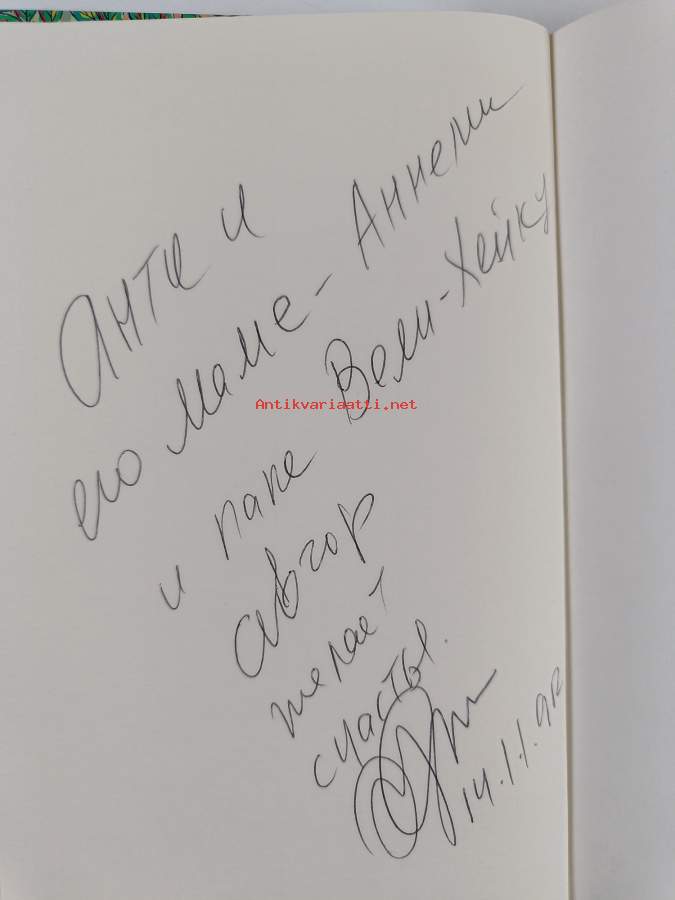 Анти и
его маме - Аннели
и папе Вели-Хейку
автор
желает
счастья.
14.11.92
Antikvariaatti.net